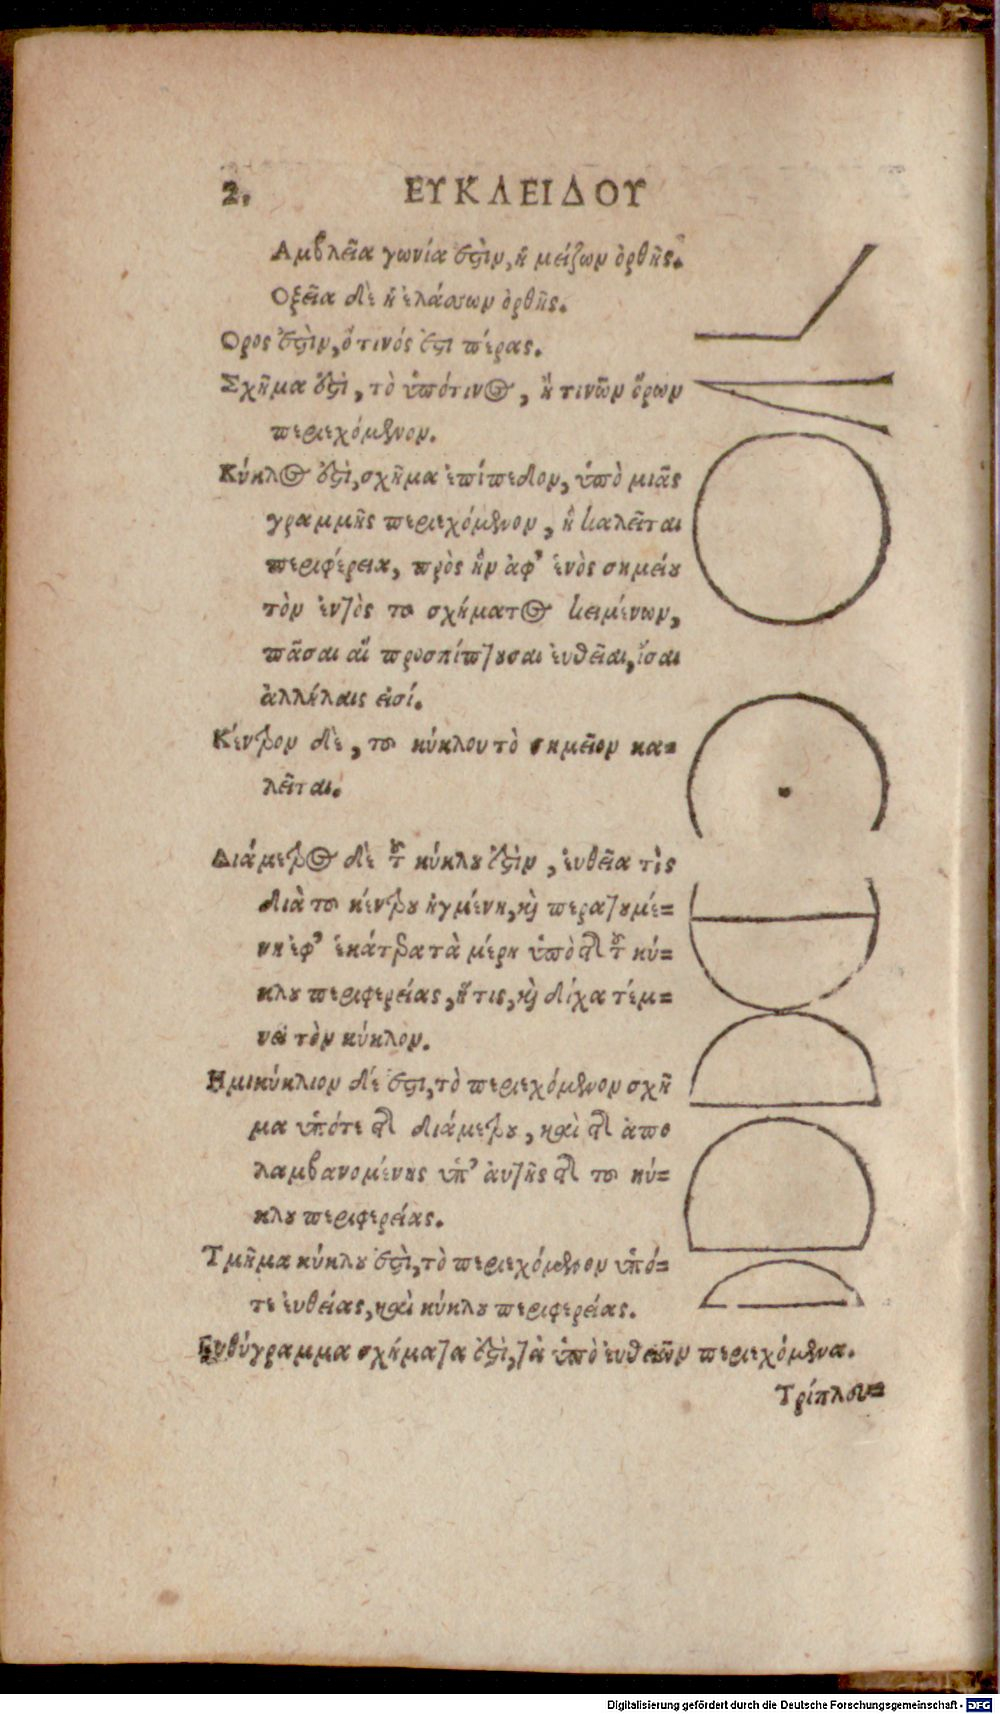 2. ΕΥΚΛΕΙΔΟΥ
Αμβλεῖα γωνία ἐςὶν, ἡ μείζων ὀρθῆς.
Οξεῖα δὲ ἡ ἐλάσσων ὀρθῆς.
Ορος ἐςὶν, ὅ τινός ἐςι πέρας.
Σχῆμα ἐςὶ, τὸ ὑπότινος, ἤ τινῶν ὅρων
περιεχόμενον.
Κύκλος ἐςὶ, σχῆμα ἐπίπεδον, ὑπὸ μιᾶς
γραμμῆς περιεχόμενον, ἣ καλεῖται
περιφέρεια, πρὸς ἣν ἀφ' ἑνὸς σημείου
τὸν ἐντὸς τοῦ σχήματος κειμένων,
πᾶσαι αἱ προσπίπτουσαι ἐυθεῖαι, ἴσαι
ἀλλήλαις εἰσί.
Κέντρον δὲ, τοῦ κύκλου τὸ σημεῖον κα=
λεῖται.
Διάμετρος δὲ τοῦ κύκλου ἐςὶν, ἐυθεῖα τὶς
διὰ τοῦ κέντρου ἠγμένη, καὶ περατουμέ=
νη ἐφ' ἑκάτερα τὰ μέρη ὑπὸ τῆς τοῦ κύ=
κλου περιφερείας, ἥτις, καὶ δίχα τέμ=
νει τὸν κύκλον.
Ημικύκλιον δέ ἐςι, τὸ περιεχόμενον σχῆ
μα ὑπότε τῆς διάμετρου, καὶ τῆς ἀπο
λαμβανομένης ὑπ' ἀυτῆς τῆς τοῦ κύ=
κλου περιφερείας.
Τμῆμα κύκλου ἐςὶ, τὸ περιεχόμενον ὑπό=
τε ἐυθείας, καὶ κύκλου περιφερείας.
Ευθύγραμμα σχήματα ἐςὶ, τὰ ὑπὸ ἐυθειῶν περιεχόμενα.
Τρίπλου=
Digitalisierung gefördert durch die Deutsche Forschungsgemeinschaft - DFG